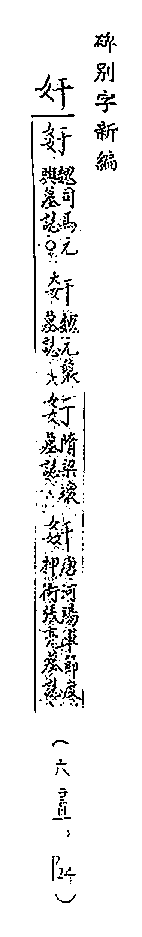 碑別字新編
奸
姧 魏司馬元興墓誌
魏元襲墓誌
隋梁瓌墓誌
姧 唐河陽軍節度押衙張亮墓誌
(六畫，P24)